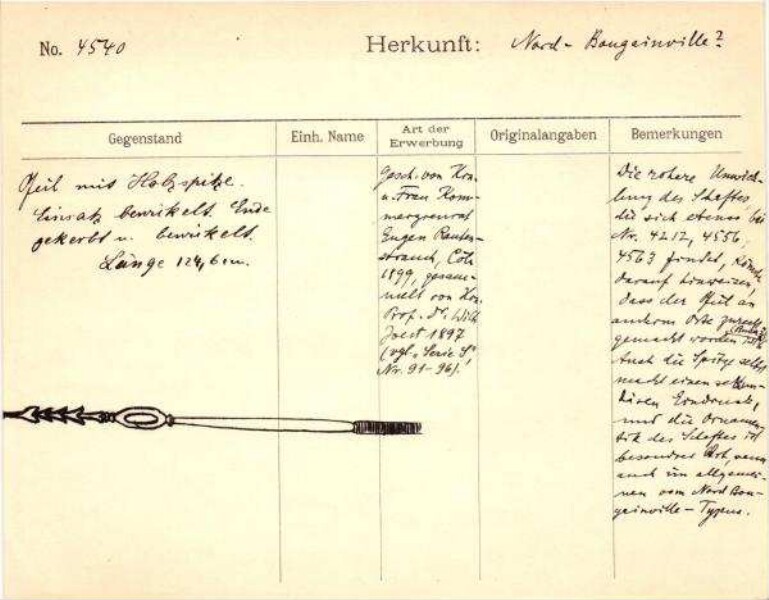 No. 4540
Herkunft: Nord-Bougainville?
Gegenstand
Einh. Name
Art der Erwerbung
Originalangaben
Bemerkungen
Pfeil mit Holzspitze.
Einsatz bewickelt. Ende
gekerbt u. bewickelt.
Länge 124,6 cm.
Gesch. von Hrn.
u. Frau Kom-
merzienrat
Eugen Rauten-
strauch, Cöln
1899, gesam-
melt von Hrn.
Prof. Dr. Wilh.
Joest 1897
(vgl. "Serie S",
Nr. 91-96).
Die rohere Umwick-
lung des Schaftes,
die sich ebenso bei
Nr. 4212, 4556,
4563 findet, könnte
darauf hinweisen,
dass der Pfeil an
anderm Orte zurecht
gemacht worden ist
Auch die Spitze selbst
macht einen
Eindruck,
und die Ornamen-
tik des Schaftes ist
besondrer Art, wenn
auch im allgemei-
nen vom Nord Bou-
gainville-Typus.